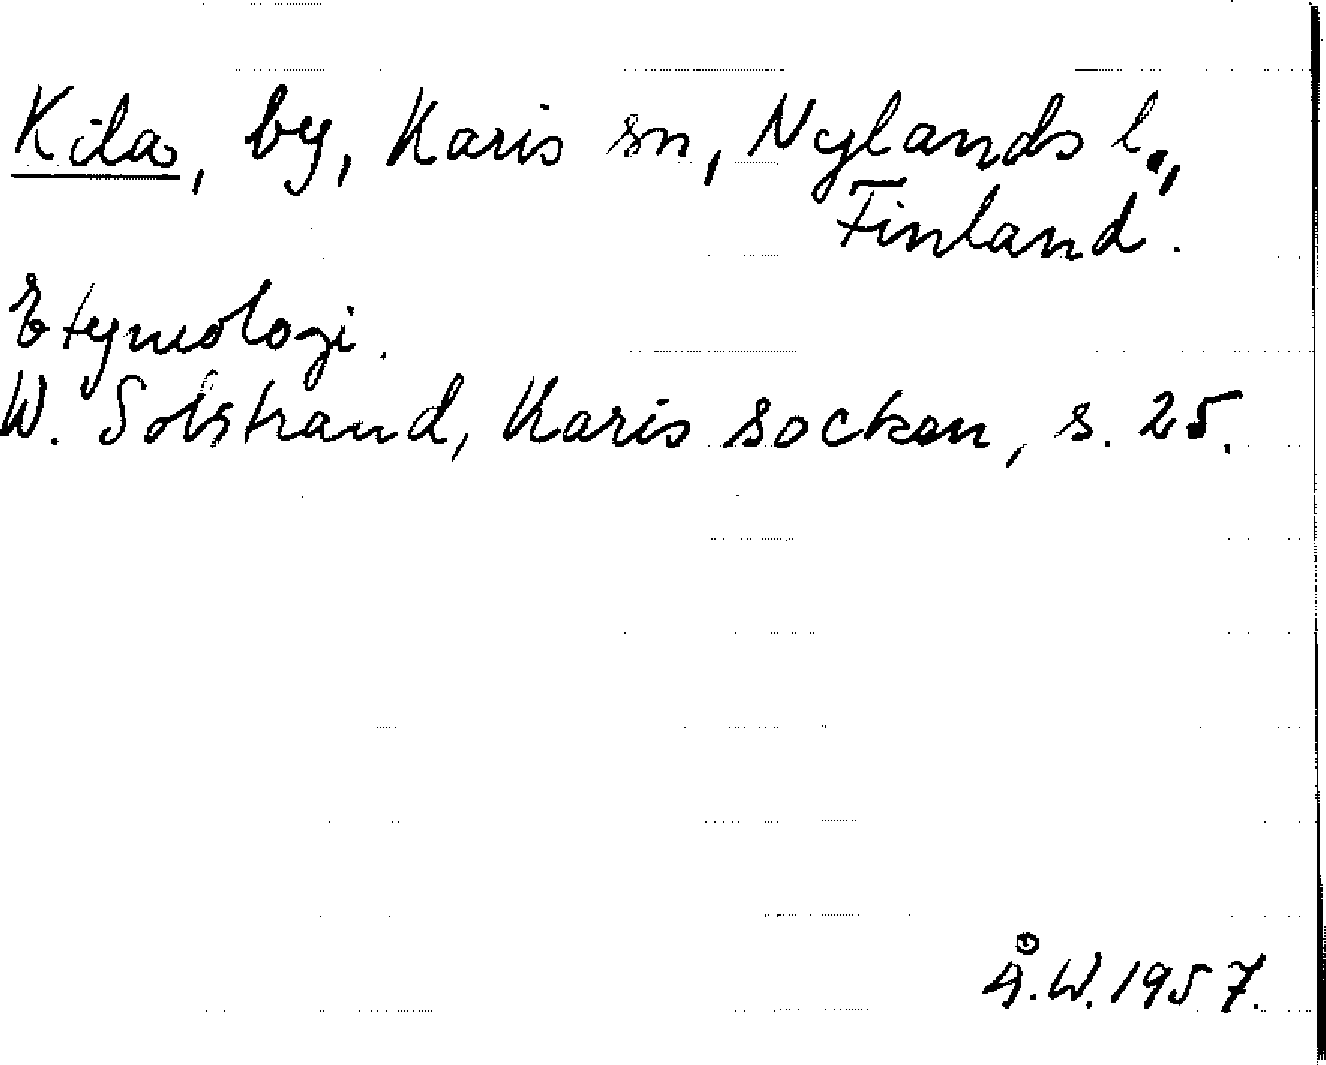 Kila, by, Karis sn, Nylands l.,
Finland.
Etymologi.
W. Solstrand, Karis socken, s. 25.
Å.W. 1957.